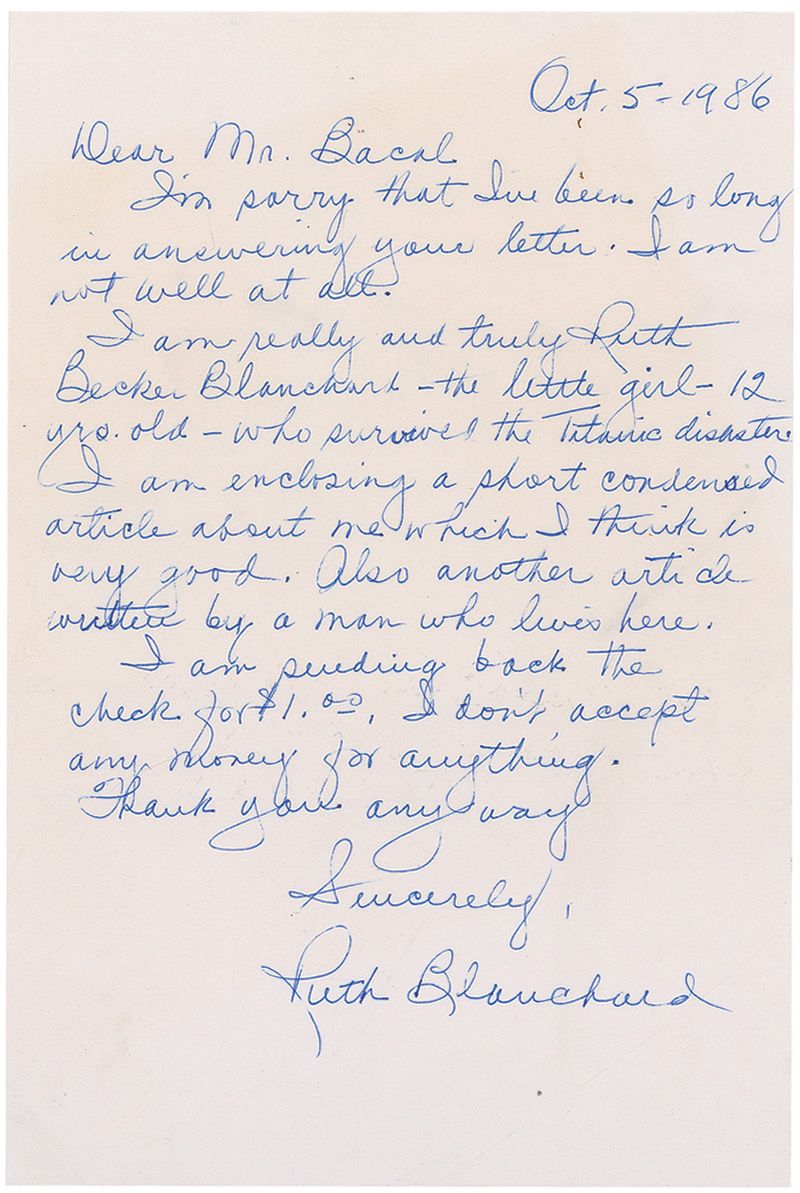 Oct. 5-1986
Dear Mr. Bacal
I'm sorry that I've been so long
in answering your letter. I am
not well at all.
I am really and truly Ruth
Becker Blanchard - the little girl - 12
yrs. old - who survived the Titanic disaster.
I am enclosing a short condensed
article about me which I think is
very good. Also another article
written by a man who lives here.
I am sending back the
check for $1.00. I don't accept
any money for anything.
Thank you any way
Sincerely,
Ruth Blanchard